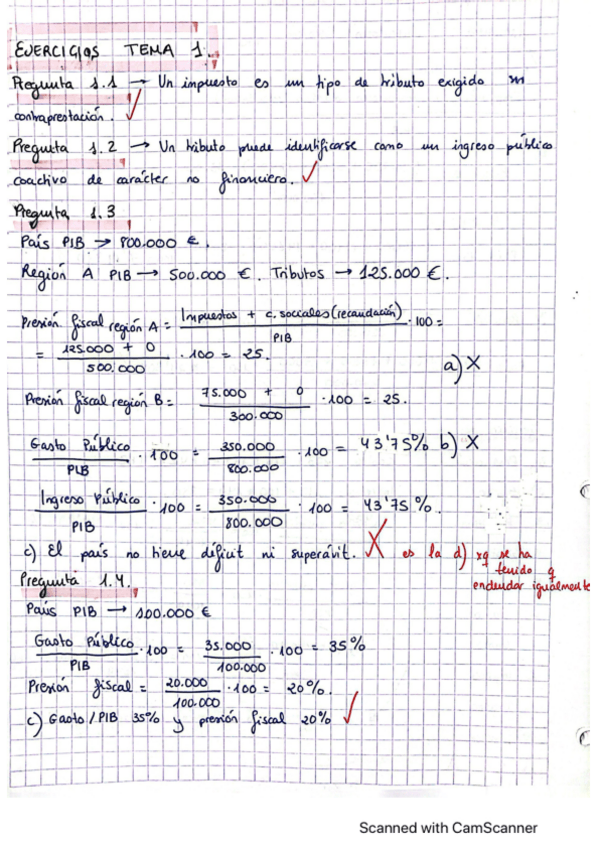 EJERCICIOS TEMA 1.
Pregunta 1.1 → Un impuesto es un tipo de tributo exigido sin
contraprestación. ✓
Pregunta 1.2 → Un tributo puede identificarse como un ingreso público
coactivo de carácter no financiero. ✓
Pregunta 1.3
País PIB → 800.000 €.
Región A PIB → 500.000 €. Tributos → 125.000 €.
Presión fiscal región A = Impuestos + c. sociales (recaudación) / PIB · 100 =
= 125.000 + 0 / 500.000 · 100 = 25. a) X
Presión fiscal región B = 75.000 + 0 / 300.000 · 100 = 25.
Gasto Público / PIB · 100 = 350.000 / 800.000 · 100 = 43'75% b) X
Ingreso Público / PIB · 100 = 350.000 / 800.000 · 100 = 43'75%.
c) El país no tiene déficit ni superávit. X es la d) xq se ha
tenido q
endeudar igualmente
Pregunta 1.4.
País PIB → 100.000 €
Gasto Público / PIB · 100 = 35.000 / 100.000 · 100 = 35%
Presión fiscal = 20.000 / 100.000 · 100 = 20%.
c) Gasto/PIB 35% y presión fiscal 20% ✓
Scanned with CamScanner